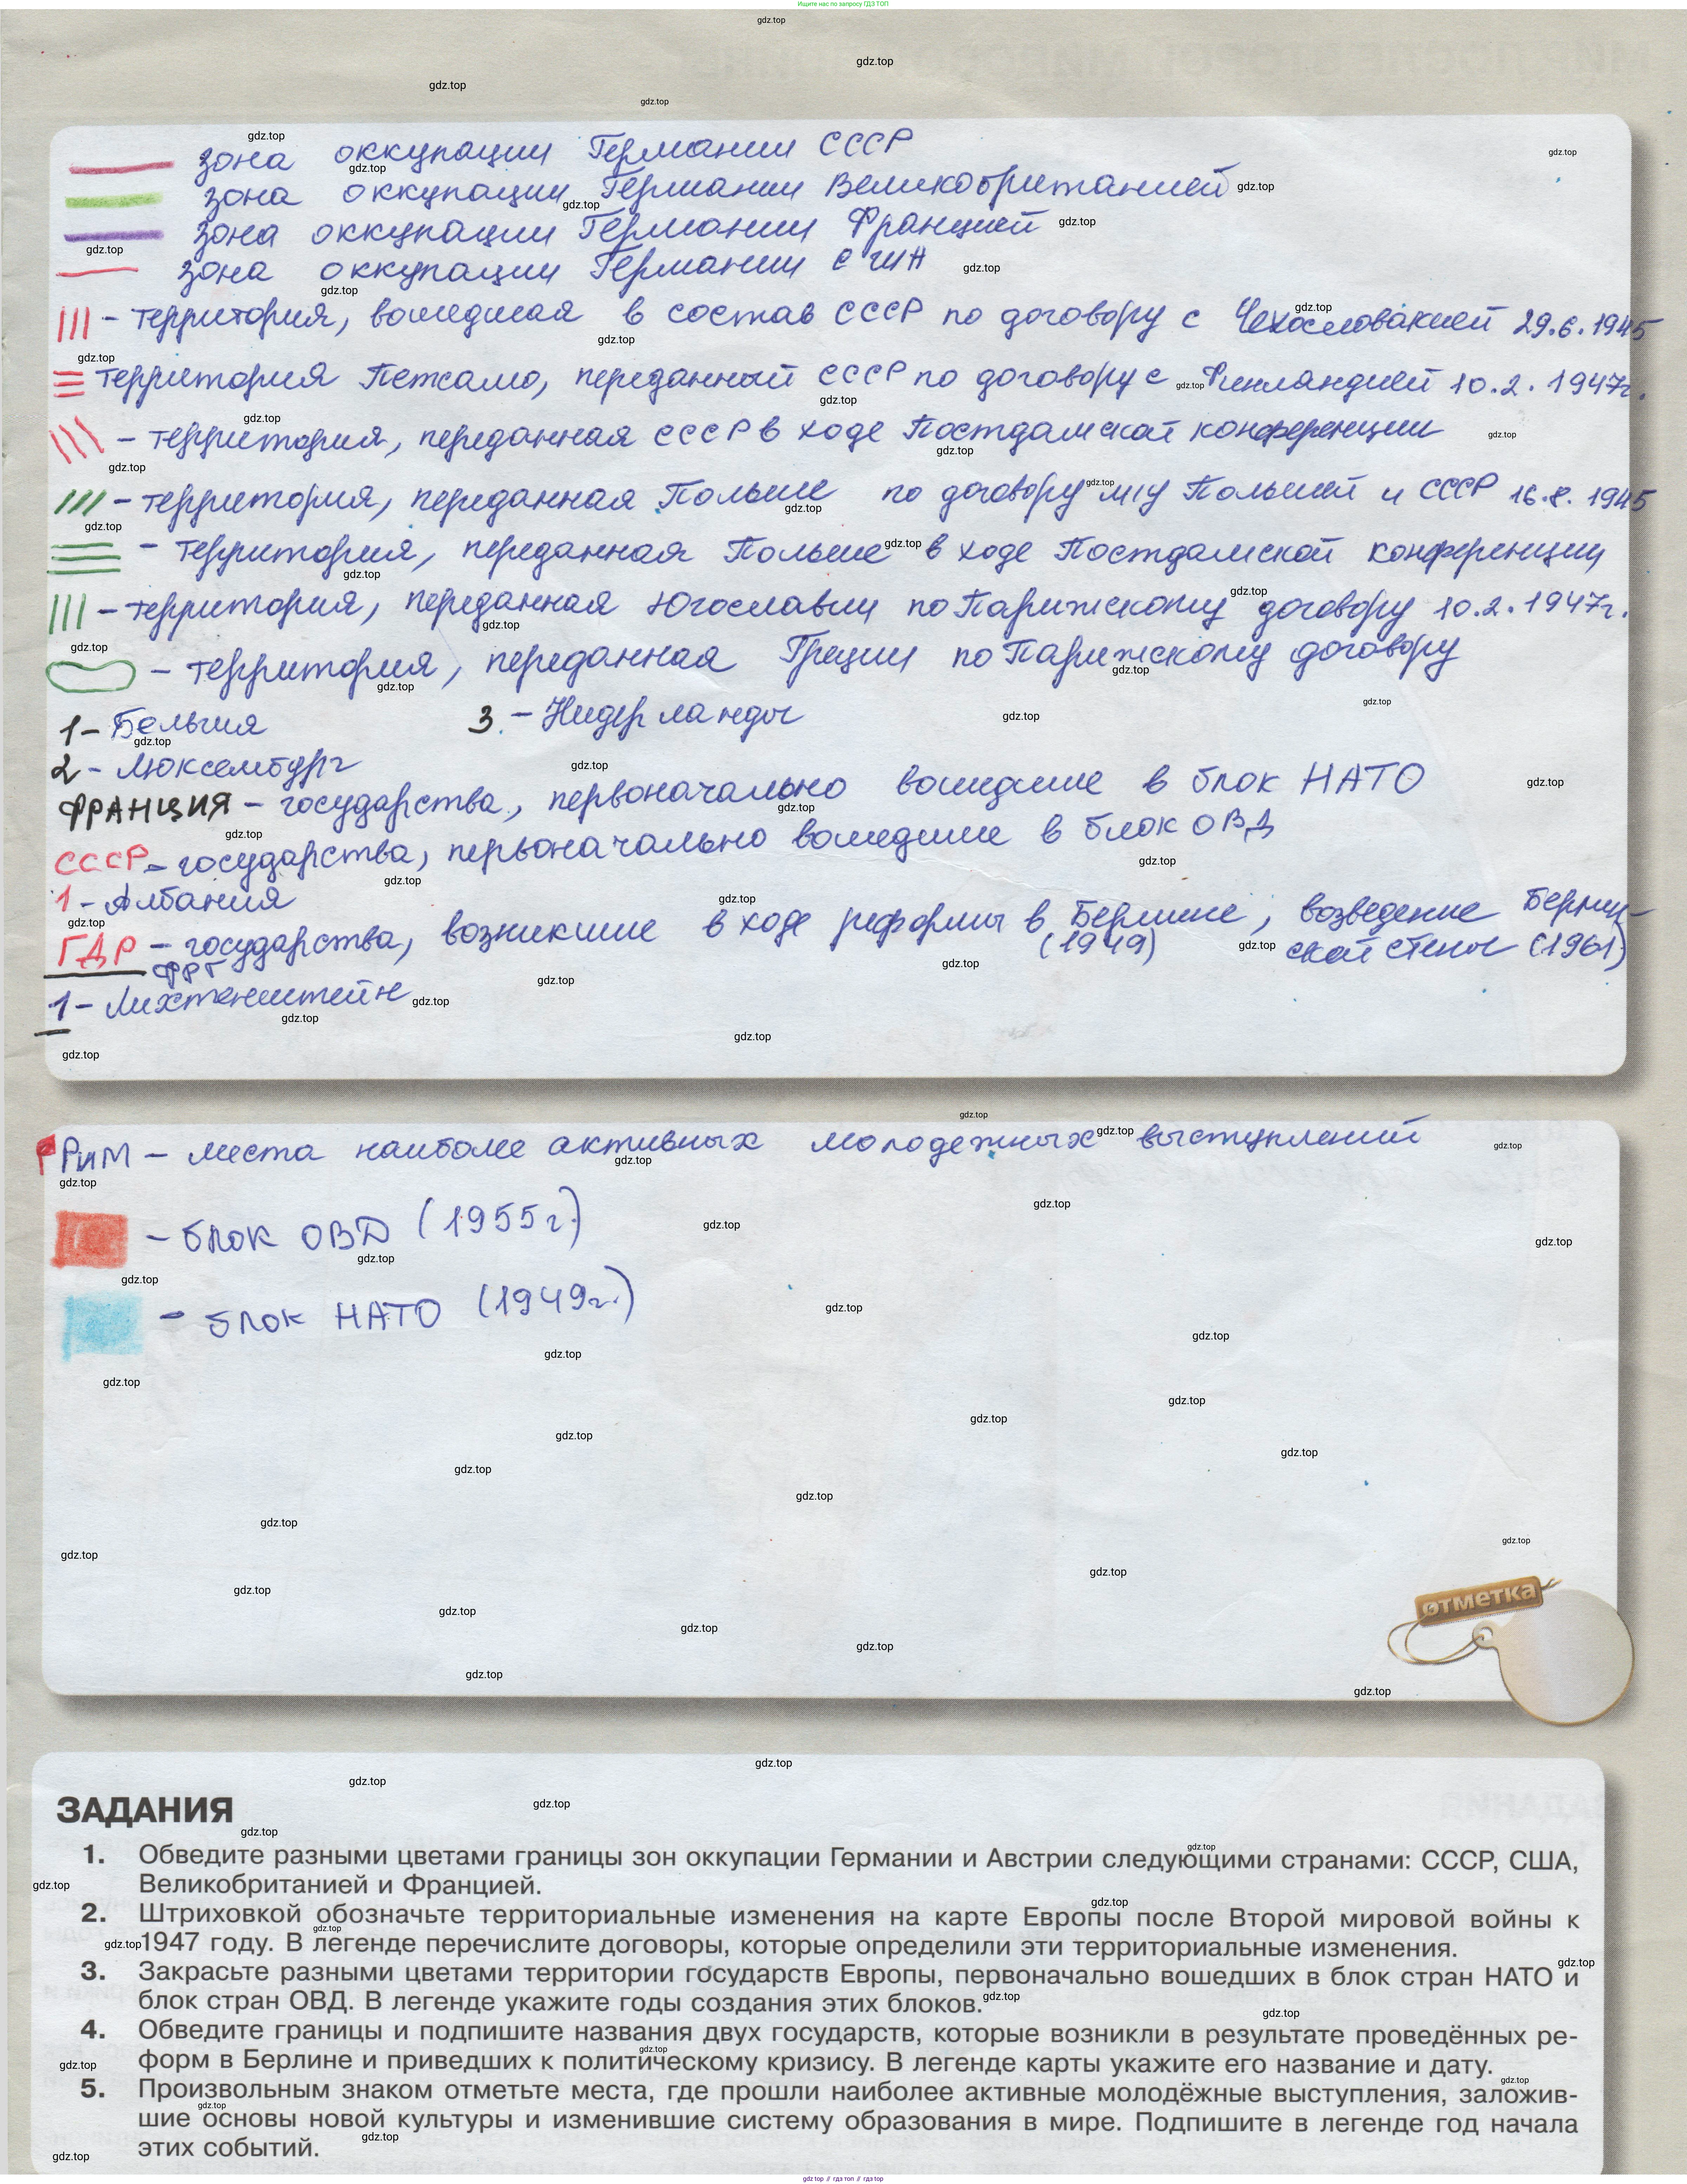 Ищите нас по запросу ГДЗ ТОП
зона оккупации Германии СССР
зона оккупации Германии Великобританией
зона оккупации Германии Францией
зона оккупации Германии США
||| - территория, вошедшая в состав СССР по договору с Чехословакией 29.6.1945
территория Петсамо, переданный СССР по договору с Финляндией 10.2.1947г.
- территория, переданная СССР в ходе Постдамской конференции
- территория, переданная Польше по договору м/у Польшей и СССР 16.8.1945
- территория, переданная Польше в ходе Постдамской конференции
||| - территория, переданная Югославии по Парижскому договору 10.2.1947г.
- территория, переданная Греции по Парижскому договору
1 - Бельгия 3 - Нидерланды
2 - Люксембург
ФРАНЦИЯ - государства, первоначально вошедшие в блок НАТО
СССР - государства, первоначально вошедшие в блок ОВД
1 - Албания
ГДР - государства, возникшие в ходе реформы в Берлине, возведение Берлин-
ФРГ (1949) ской стены (1961)
1 - Лихтенштейн
Рим - места наиболее активных молодежных выступлений
- блок ОВД (1955г.)
- блок НАТО (1949г.)
отметка
ЗАДАНИЯ
1. Обведите разными цветами границы зон оккупации Германии и Австрии следующими странами: СССР, США,
Великобританией и Францией.
2. Штриховкой обозначьте территориальные изменения на карте Европы после Второй мировой войны к
1947 году. В легенде перечислите договоры, которые определили эти территориальные изменения.
3. Закрасьте разными цветами территории государств Европы, первоначально вошедших в блок стран НАТО и
блок стран ОВД. В легенде укажите годы создания этих блоков.
4. Обведите границы и подпишите названия двух государств, которые возникли в результате проведённых ре-
форм в Берлине и приведших к политическому кризису. В легенде карты укажите его название и дату.
5. Произвольным знаком отметьте места, где прошли наиболее активные молодёжные выступления, заложив-
шие основы новой культуры и изменившие систему образования в мире. Подпишите в легенде год начала
этих событий.
gdz.top // гдз топ // гдз.top